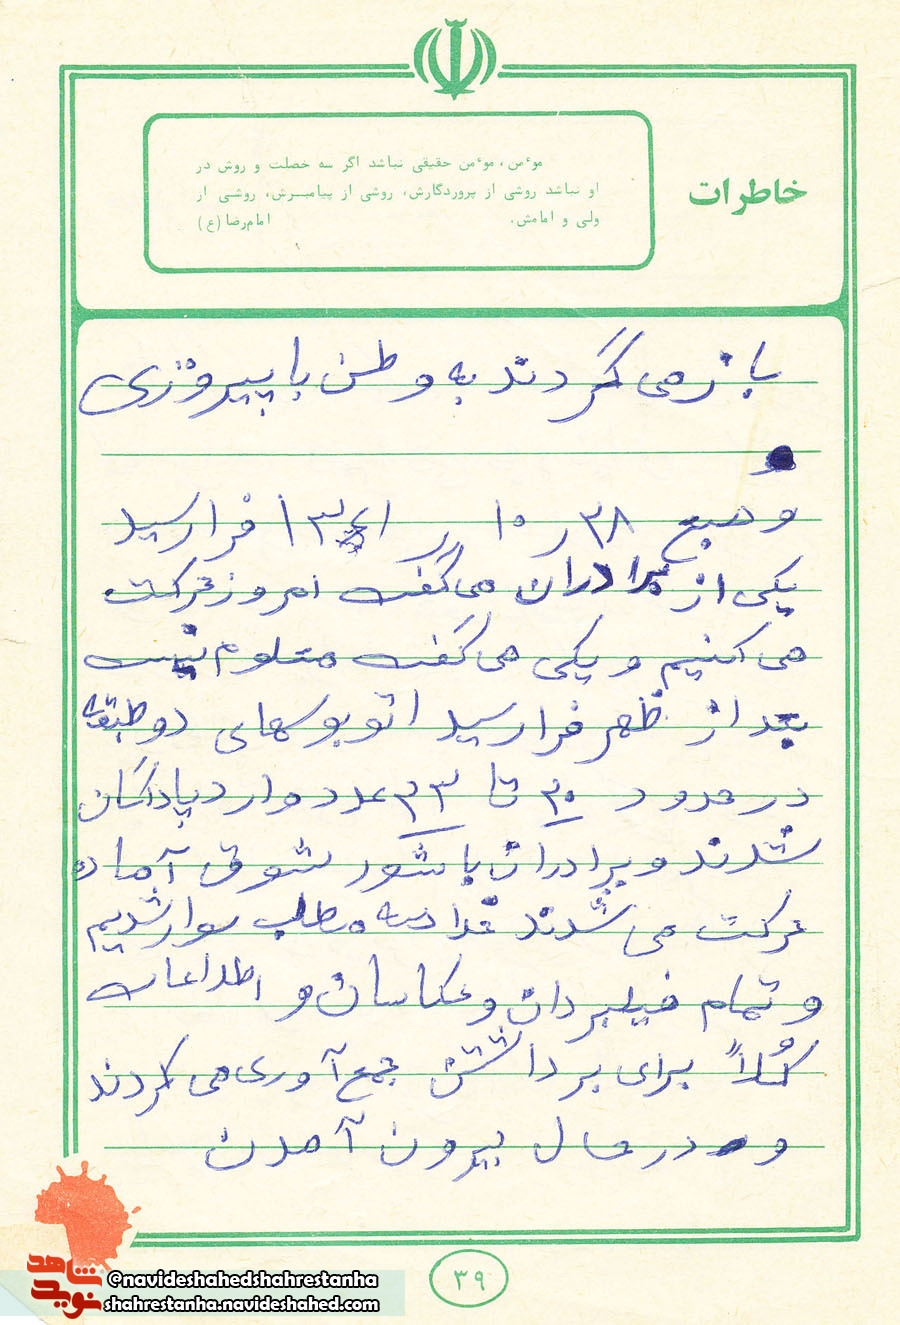 خاطرات
موءمن، موءمن حقیقی نباشد اگر سه خصلت و روش در
او نباشد روشی از پروردگارش، روشی از پیامبرش، روشی از
ولی و امامش. امام‌رضا (ع)
باز می گردند به وطن با پیروزی
و
و صبح ۲۸ ر ۱۰ ر ۱۳۶۱ فرا رسید
یکی از برادران می گفت امروز حرکت
می کنیم و یکی می گفت معلوم نیست
بعد از ظهر فرا رسید اتوبوسهای دو طبقه‌ای
در حدود ۳۰ تا ۳۳ عدد وارد پادگان
شدند و برادران با شور شوق آماده
حرکت می شدند خلاصه مطلب سوار شدیم
و تمام فیلبردان و عکاسان و اطلاعات
کُلاً برای برداشتن جمع آوری می کردند
و در حال بیرون آمدن
۳۹
شاهد
نوید
@navideshahedshahrestanha
shahrestanha.navideshahed.com